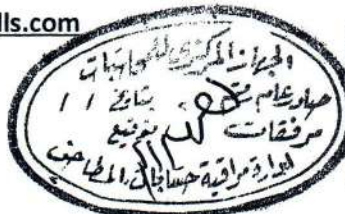 lls.com
الجهاز المركزي للمحاسبات
صادر عام بتاريخ / /
مرفقات توقيع
ادارة مراقبة حسابات المطاحن